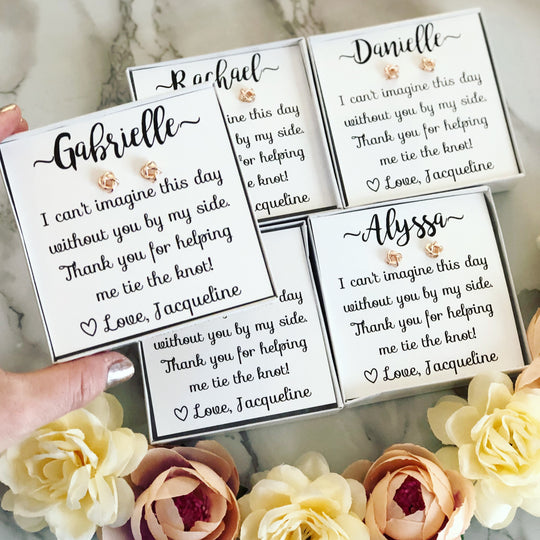 Gabrielle
I can't imagine this day
without you by my side.
Thank you for helping
me tie the knot!
♡ Love, Jacqueline
Rachael
ine this day
by my side.
or helping
e knot!
cqueline
Danielle
I can't imagine this day
without you by my side.
Thank you for helping
me tie the knot!
♡ Love, Jacqueline
without you by my side.
Thank you for helping
me tie the knot!
♡ Love, Jacqueline
Alyssa
I can't imagine this day
without you by my side.
Thank you for helping
me tie the knot!
♡ Love, Jacqueline